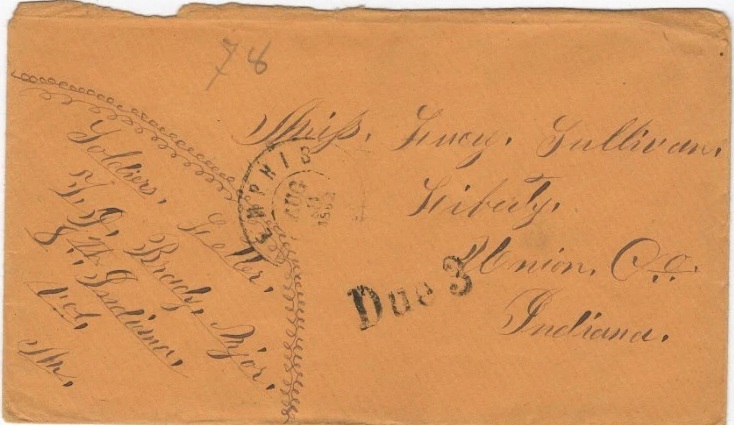 78
Soldiers, Letter,
T. J. Brady, Major,
8th Indiana,
Vol,
Miss. Lucy. Sullivan,
Liberty,
Union, Co.
Indiana.
MEMPHIS
AUG
Due 3